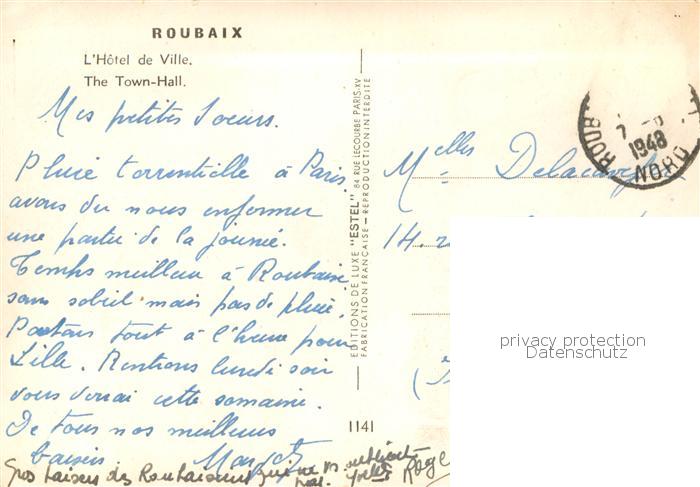 ROUBAIX
L'Hôtel de Ville.
The Town-Hall.
Mes petites Soeurs.
Pluie torrentielle à Paris
avons du nous enfermer
une partie de la journée.
Temps meilleur à Roubaix
sans soleil mais pas de pluie.
Partons tout à l'heure pour
Lille. Rentrons lundi soir
vous verrai cette semaine.
De tous nos meilleurs
baisers Margot
Gros baisers des Roubaisiens qui ne vs oublient
pas.
EDITIONS DE LUXE "ESTEL" 84 RUE LECOURBE PARIS-XV
FABRICATION FRANÇAISE - REPRODUCTION INTERDITE
1141
Melles
14.
ROUB
7
1948
NORD
privacy protection
Datenschutz